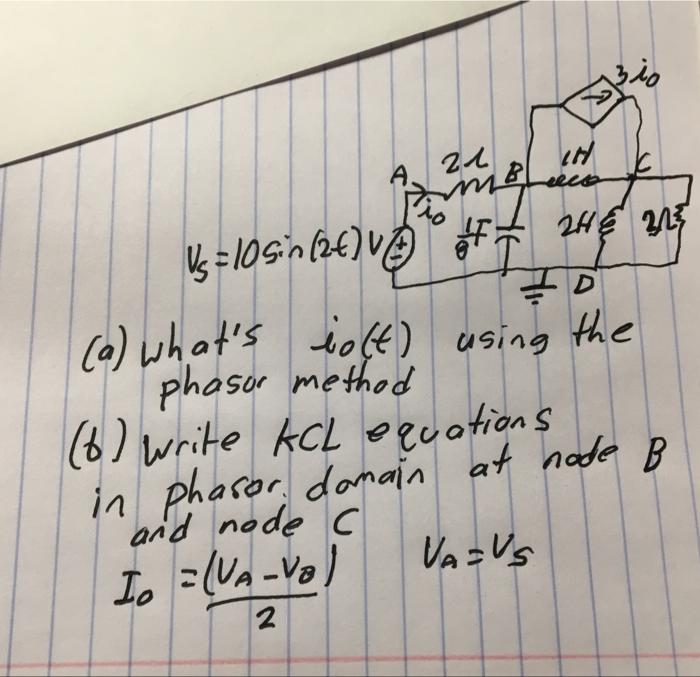 3io
A 2Ω B 1H C
io
1/8F 2H 2Ω
Vs = 10 sin(2t) V
D
(a) what's io(t) using the
phasor method
(b) Write KCL equations
in phasor. domain at node B
and node C
Io = (VA - VB) / 2 VA = VS